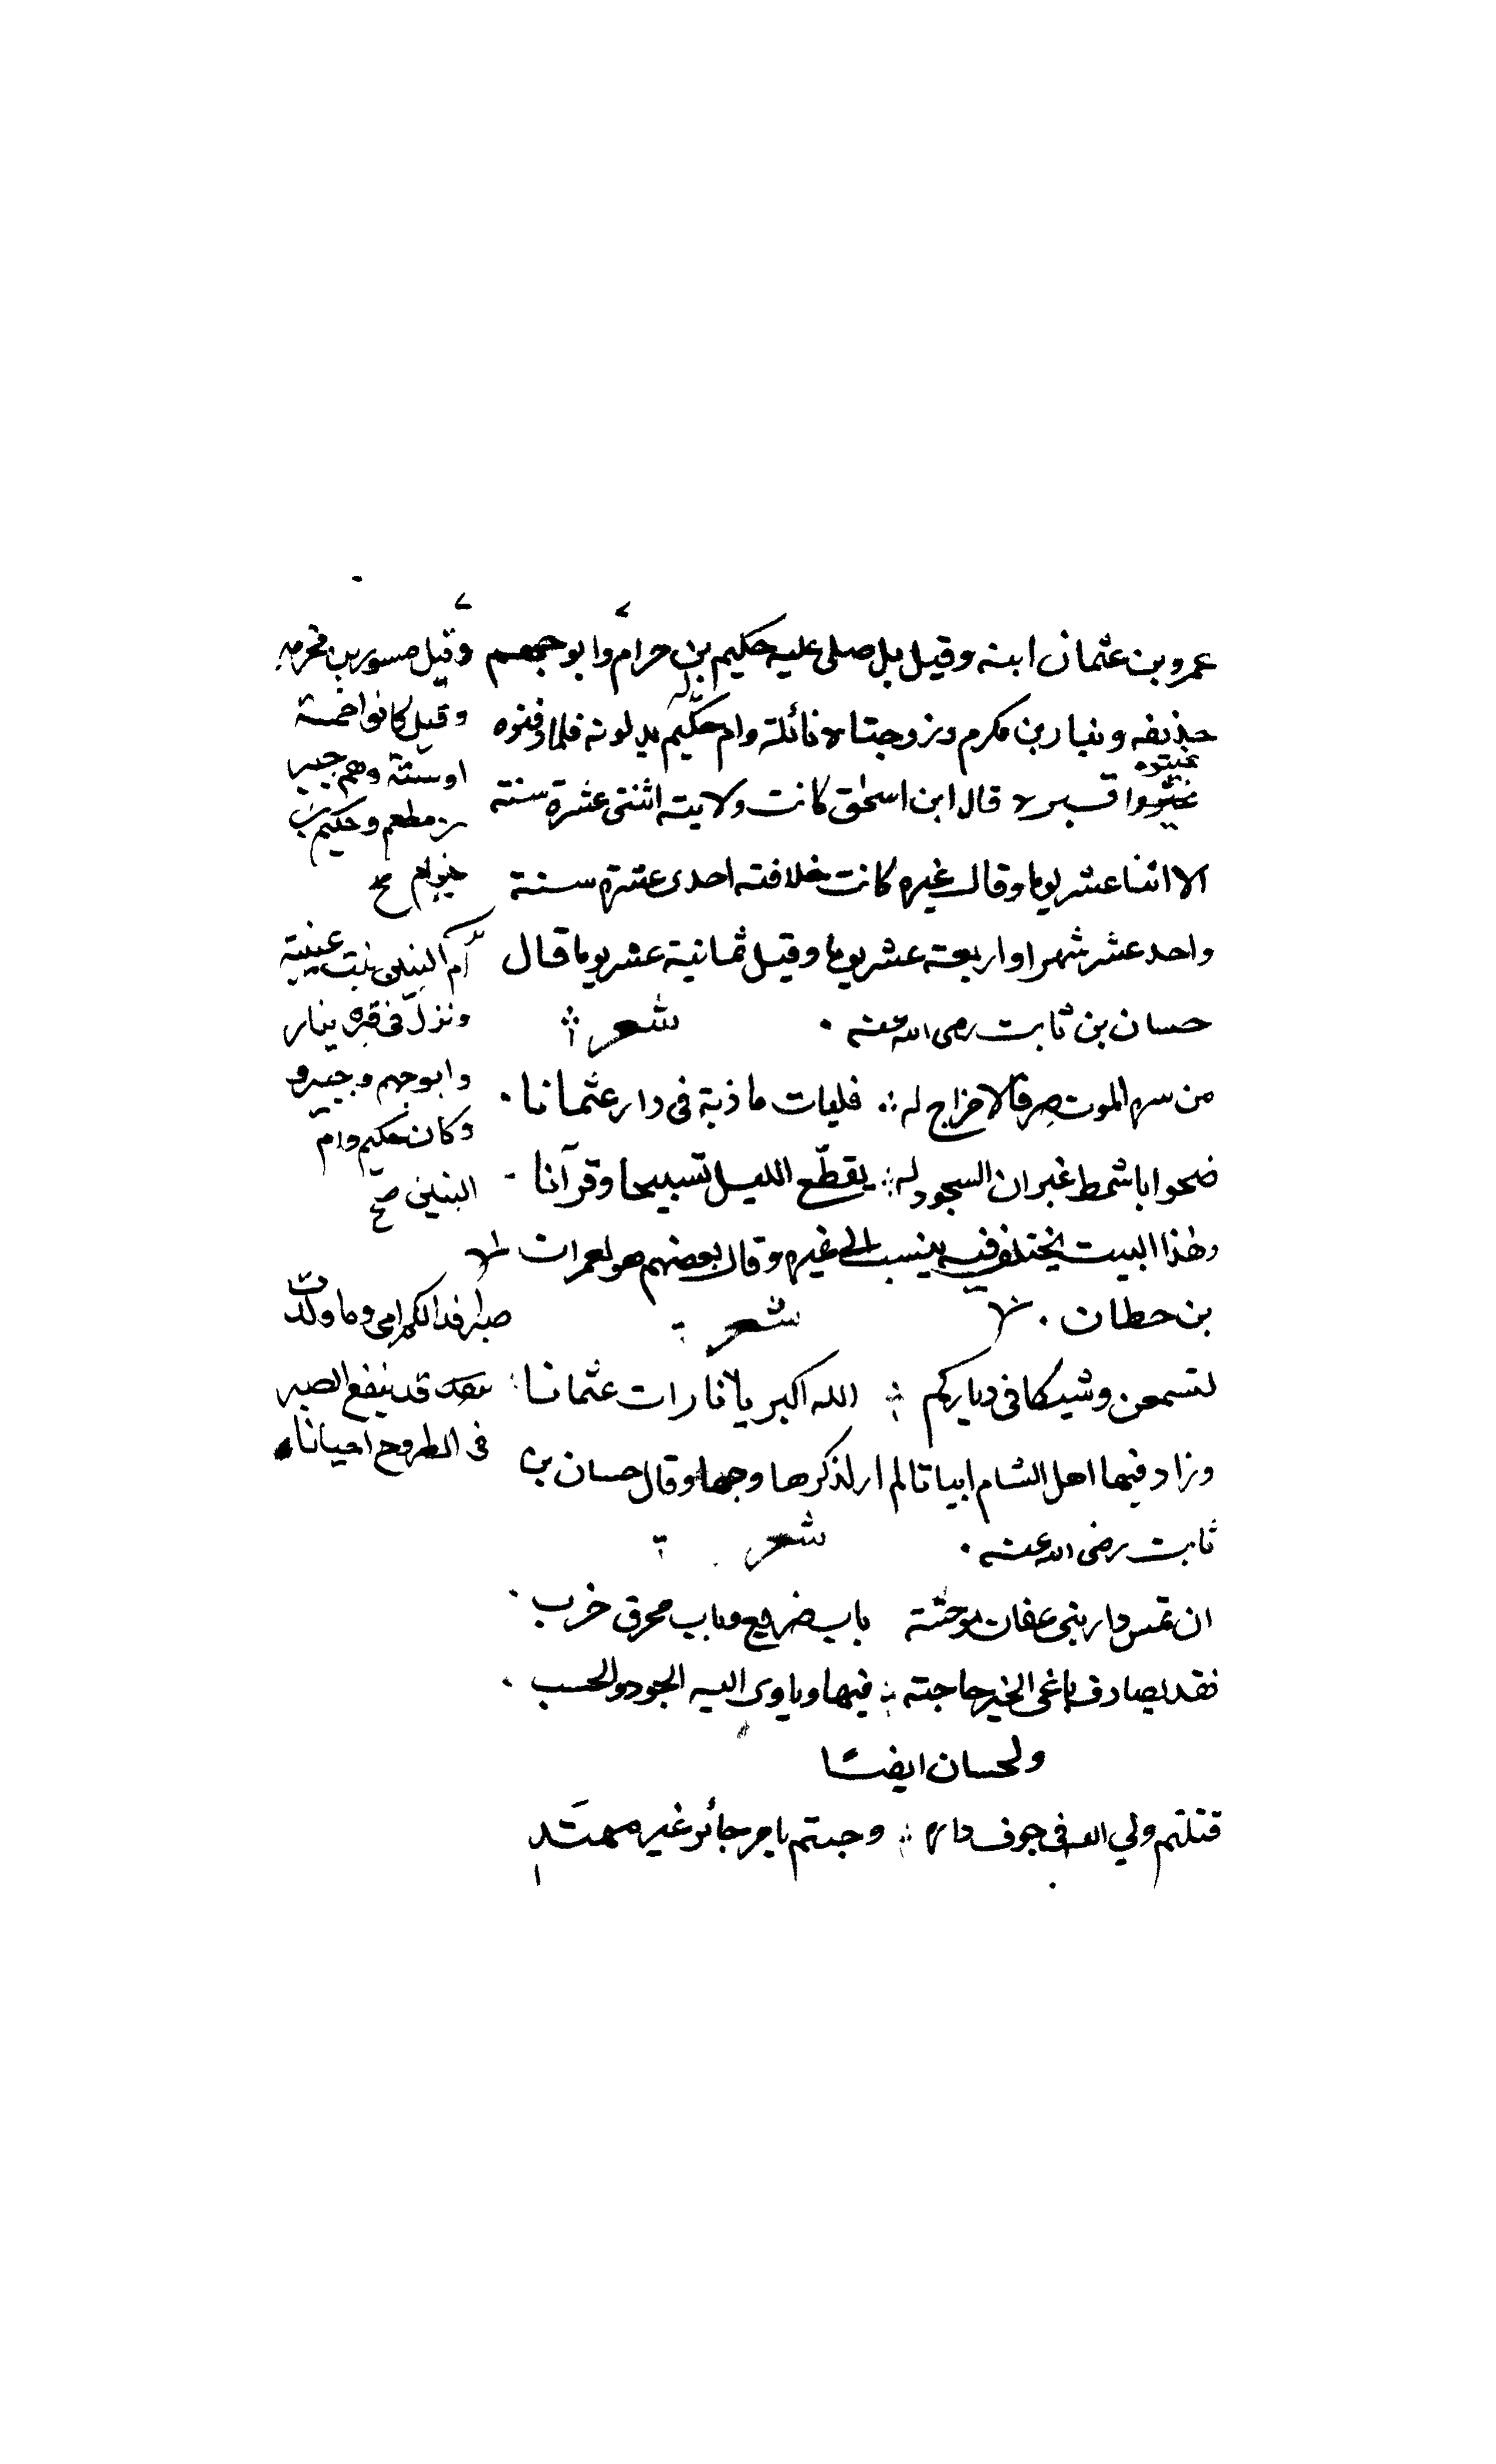 عمرو بن عثمان ابنه وقيل بل صلى عليه حكيم بن حرام وابو جهم
حذيفه ونيار بن مكرم وزوجتاه نائلة وام حكيم يدلونه فلما دفنوه
غيبوه
غيبوا قبره قال ابن اسحق كانت ولايته اثنتى عشرة سنته
الا اثنا عشر يوما وقال غيره كانت خلافته احدى عشرة سنة
واحد عشر شهرا واربعة عشر يوما وقيل ثمانية عشر يوما قال
حسان بن ثابت رضى الله عنه . شعر
من سره الموت صرفا لا مزاج له ∴ فليات ماذبة فى دار عثمانا .
ضحوا باشمط عنوان السجود له ∴ يقطّع الليل تسبيحا وقرآنا
وهذا البيت يختلف فيه ينسب الى غيره وقال بعضهم هو لعمران
بن حطان . شعر
لتسمعن وشيكا فى دياركم ∴ الله اكبر يا ثارات عثمانا
وزاد فيها اهل الشام ابياتا لم ار لذكرها وجها وقال حسان بن
ثابت رضى الله عنه . شعر
ان تمس دار بنى عفان موحشة باب صريع وباب محرق خرب .
فقد يصادف باغى الخير حاجته ∴ فيها وياوى اليه الجود والحسب .
ولحسان ايضا
قتلتم ولي الله فى جوف داره ∴ وجئتم بامر جائر غير مهتد
وقيل مسور بن مخرمه
وقيل كانوا خمسة
او ستة وهم جبير
بن مطعم وحكيم بن
حزام صح
ام البنين بنت عيينة
ونزل فى قبره نيار
وابو جهم وجبير و
وكان حكيم وام
البنين صح
صبرا فدا لكم امى وما ولدت
قد ينفع الصبر
فى المكروه احيانا